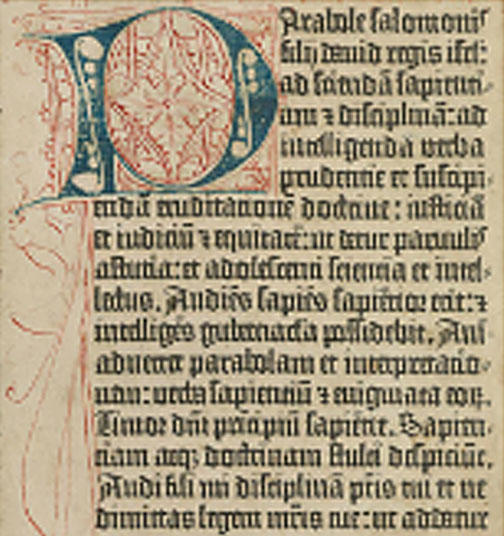 Parabole salomonis
filij dauid regis isrl:
ad sciendā sapienti-
am ⁊ disciplinā: ad
intelligenda verba
prudentie et suscipi-
endā eruditationē doctrine: iusticiā
et iudiciū ⁊ equitatē: ut detur paruulis
astutia: et adolescenti scientia et intel-
lectus. Audiēs sapiēs sapiētior erit: ⁊
intelligēs gubernacla possidebit. Ani-
aduertet parabolam et interpretatio-
nem: verba sapientiū ⁊ enigmata eoꝝ.
Timor dn̄i principiū sapiētie. Sapien-
tiam atqꝫ doctrinam stulti despiciūt.
Audi fili mi disciplinā pr̄is tui et ne
dimittas legem mr̄is tue: ut addatur